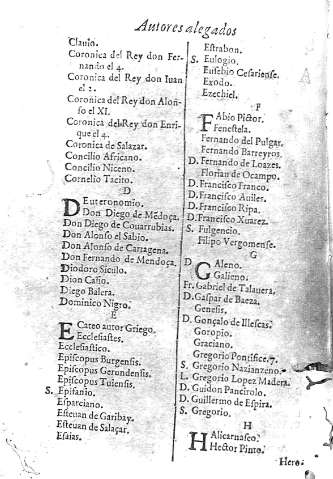 Autores alegados
Clauio.
Coronica del Rey don Fer-
nando el 4.
Coronica del Rey don Iuan
el 2.
Coronica del Rey don Alon-
so el XI.
Coronica del Rey don Enri-
que el 4.
Coronica de Salazar.
Concilio Africano.
Concilio Niceno.
Cornelio Tacito.
D
Deuteronomio.
Don Diego de Mẽdoça.
Don Diego de Couarrubias.
Don Alonso el Sabio.
Don Alonso de Cartagena.
Don Fernando de Mendoça.
Diodoro Siculo.
Dion Casio.
Diego Balera.
Dominico Nigro.
E
Ecateo autor Griego.
Ecclesiastes.
Ecclesiastico.
Episcopus Burgensis.
Episcopus Gerundensis.
Episcopus Tuiensis.
S. Epifanio.
Esparciano.
Esteuan de Garibay.
Esteuan de Salaçar.
Esaias.
Estrabon.
S. Eulogio.
Eusebio Cesariense.
Exodo.
Ezechiel.
F
Fabio Pictor.
Fenestela.
Fernando del Pulgar.
Fernando Barreyros.
D. Fernando de Loazes.
Florian de Ocampo.
D. Francisco Franco.
D. Francisco Auiler.
D. Francisco Ripa.
D. Francisco Xuarez.
S. Fulgencio.
Filipo Vergomense.
G
D Galeno.
Galieno.
Fr. Gabriel de Talauera.
D. Gaspar de Baeza.
Genesis.
D. Gonçalo de Illescas.
Goropio.
Graciano.
Gregorio Pontifice. 7.
S. Gregorio Nazianzeno.
L. Gregorio Lopez Madera.
D. Guidon Pancirolo.
D. Guillermo de Espira.
S. Gregorio.
H
Halicarnaseo.
Hector Pinto.
Hero-